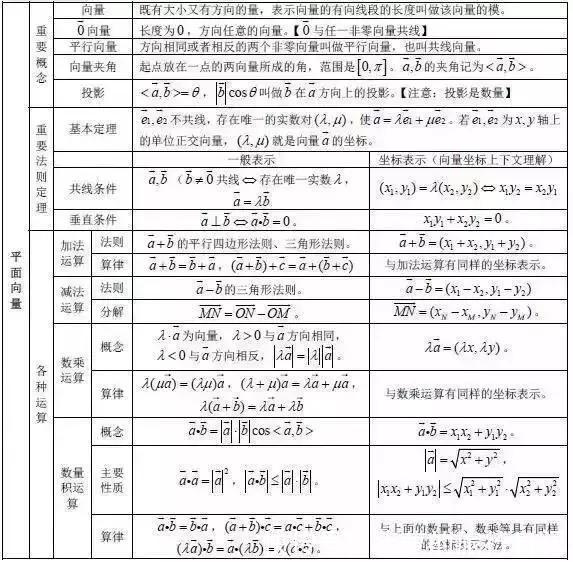 平面向量
重要概念
向量 既有大小又有方向的量，表示向量的有向线段的长度叫做该向量的模。
0⃗向量 长度为0，方向任意的向量。【0⃗与任一非零向量共线】
平行向量 方向相同或者相反的两个非零向量叫做平行向量，也叫共线向量。
向量夹角 起点放在一点的两向量所成的角，范围是[0,π]。a⃗,b⃗的夹角记为<a⃗,b⃗>。
投影 <a⃗,b⃗>=θ，|b⃗|cosθ叫做b⃗在a⃗方向上的投影。【注意：投影是数量】
重要法则定理
基本定理 e⃗1,e⃗2不共线，存在唯一的实数对(λ,μ)，使a⃗=λe⃗1+μe⃗2。若e⃗1,e⃗2为x,y轴上
的单位正交向量，(λ,μ)就是向量a⃗的坐标。
一般表示 坐标表示（向量坐标上下文理解）
共线条件 a⃗,b⃗（b⃗≠0⃗共线⇔存在唯一实数λ，
a⃗=λb⃗ (x1,y1)=λ(x2,y2)⇔x1y2=x2y1
垂直条件 a⃗⊥b⃗⇔a⃗•b⃗=0。 x1y1+x2y2=0。
各种运算
加法运算 法则 a⃗+b⃗的平行四边形法则、三角形法则。 a⃗+b⃗=(x1+x2,y1+y2)。
算律 a⃗+b⃗=b⃗+a⃗，(a⃗+b⃗)+c⃗=a⃗+(b⃗+c⃗) 与加法运算有同样的坐标表示。
减法运算 法则 a⃗−b⃗的三角形法则。 a⃗−b⃗=(x1−x2,y1−y2)
分解 MN=ON−OM。 MN=(xN−xM,yN−yM)。
数乘运算 概念 λ·a⃗为向量，λ>0与a⃗方向相同，
λ<0与a⃗方向相反，|λa⃗|=|λ||a⃗|。 λa⃗=(λx,λy)。
算律 λ(μa⃗)=(λμ)a⃗，(λ+μ)a⃗=λa⃗+μa⃗，
λ(a⃗+b⃗)=λa⃗+λb⃗ 与数乘运算有同样的坐标表示。
数量积运算 概念 a⃗•b⃗=|a⃗|·|b⃗|cos<a⃗,b⃗> a⃗•b⃗=x1x2+y1y2。
主要性质 a⃗•a⃗=|a⃗|²，|a⃗•b⃗|≤|a⃗|·|b⃗|。 |a⃗|=√(x²+y²)，
|x1x2+y1y2|≤√(x1²+y1²)·√(x2²+y2²)
算律 a⃗•b⃗=b⃗•a⃗，(a⃗+b⃗)•c⃗=a⃗•c⃗+b⃗•c⃗， 与上面的数量积、数乘等具有同样
(λa⃗)•b⃗=a⃗•(λb⃗)= 的坐标表示方法。